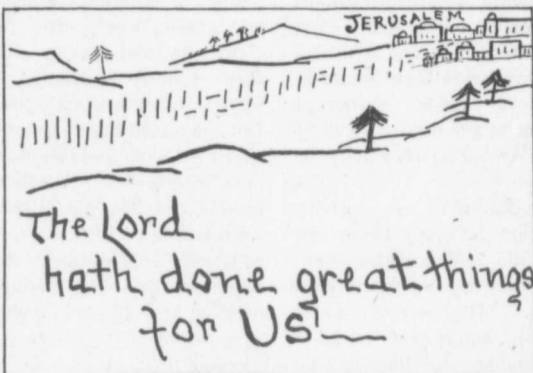 JERUSALEM
The Lord
hath done great things
for US—